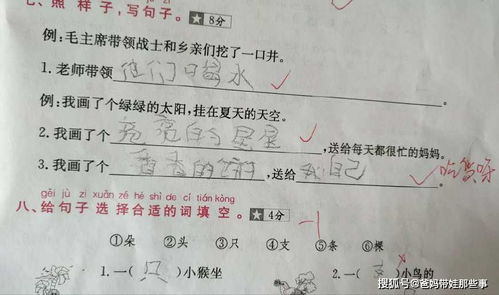 七、照样子,写句子。★8分
例:毛主席带领战士和乡亲们挖了一口井。
1.老师带领他们口渴水
例:我画了个绿绿的太阳,挂在夏天的天空。
2.我画了个亮亮的星星,送给每天都很忙的妈妈。
3.我画了个香香的饼,送给我自己
gěi jù zi xuǎn zé hé shì de cí tián kòng
八、给句子选择合适的词填空。★4分
①朵 ②头 ③只 ④支 ⑤条 ⑥棵
1.一(只)小猴坐 2.一( )小鸟的
搜狐号@爸妈带娃那些事